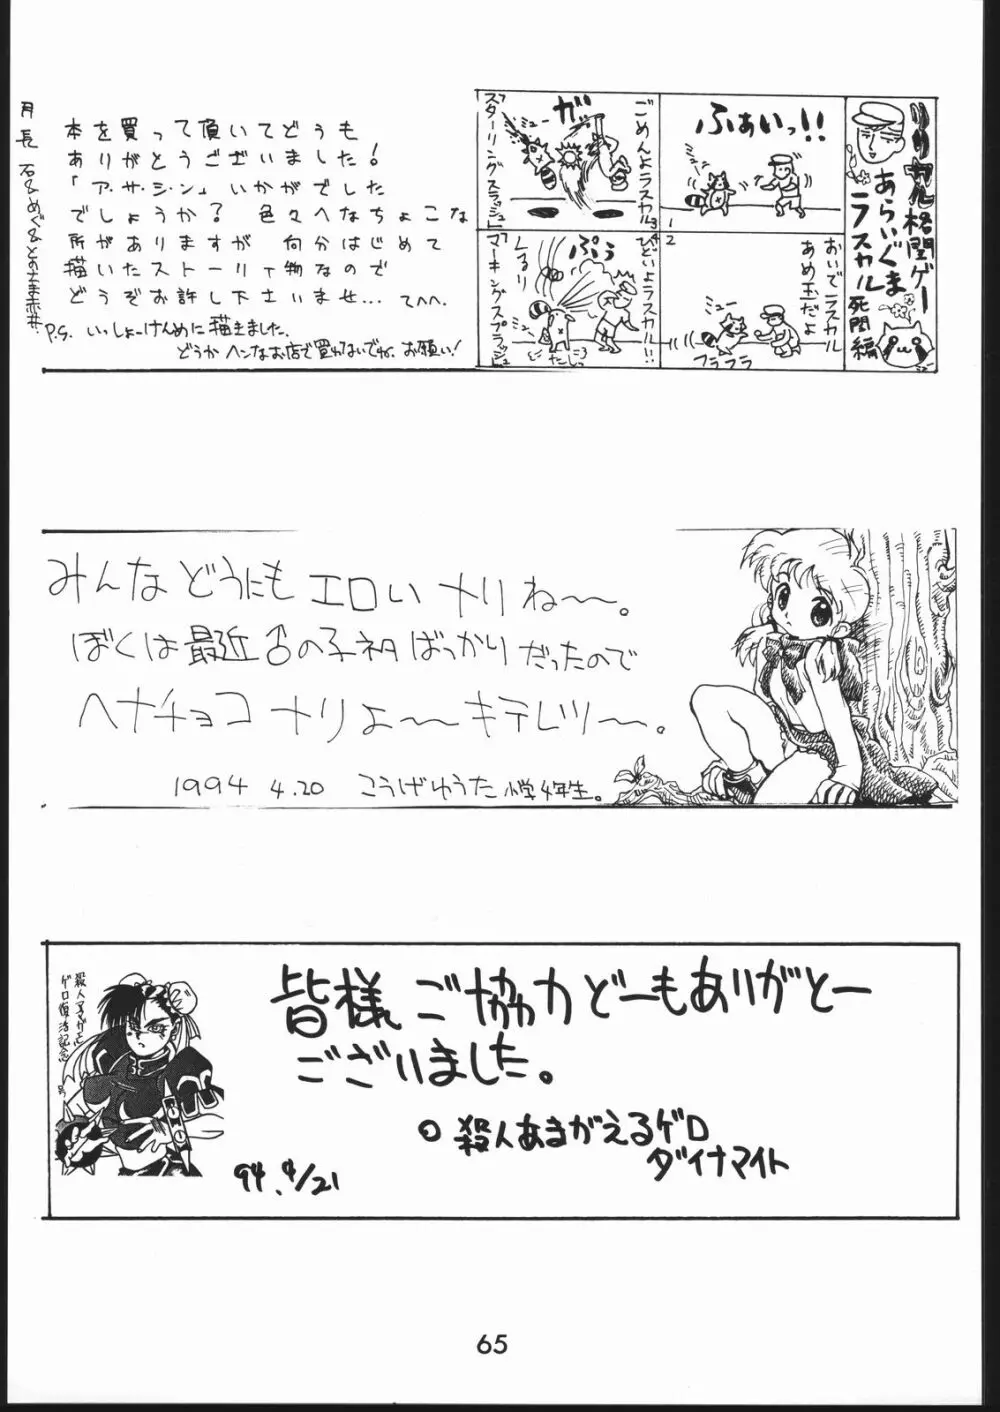 月長石&めぐ&とのさま赤井
本を買って頂いてどうも
ありがとうございました!
「ア・サ・シ・ン」いかがでした
でしょうか? 色々へなちょこな
所がありますが 何分はじめて
描いたストーリィ物なので
どうぞお許し下さいませ… てへへ.
P.S. いっしょーけんめいに描きました.
どうかヘンなお店で買わないでね. お願い!
リリカル格闘ゲー
あらいぐま
ラスカル
死闘編
1
ふぁいっ!!
2
おいでラスカル
あめ玉だよ
ミュー
フラフラ
3
ごめんよラスカル
ガッ
「スターリングスラッシュ」
4
ひどいよラスカル!!
ぷぅ
しるり
ミュー
「マーキングスプラッシュ」
みんなどうにもエロいナリね〜〜。
ぼくは最近♂の子ネタばっかりだったので
ヘナチョコナリよ〜〜キテレツ〜〜。
1994 4.20 こうげゆうた 小学4年生。
殺人アマガエル
ゲロ復活記念
号
皆様ご協力どーもありがとー
ございました。
○ 殺人あまがえるゲロ
ダイナマイト
94. 4/21
65